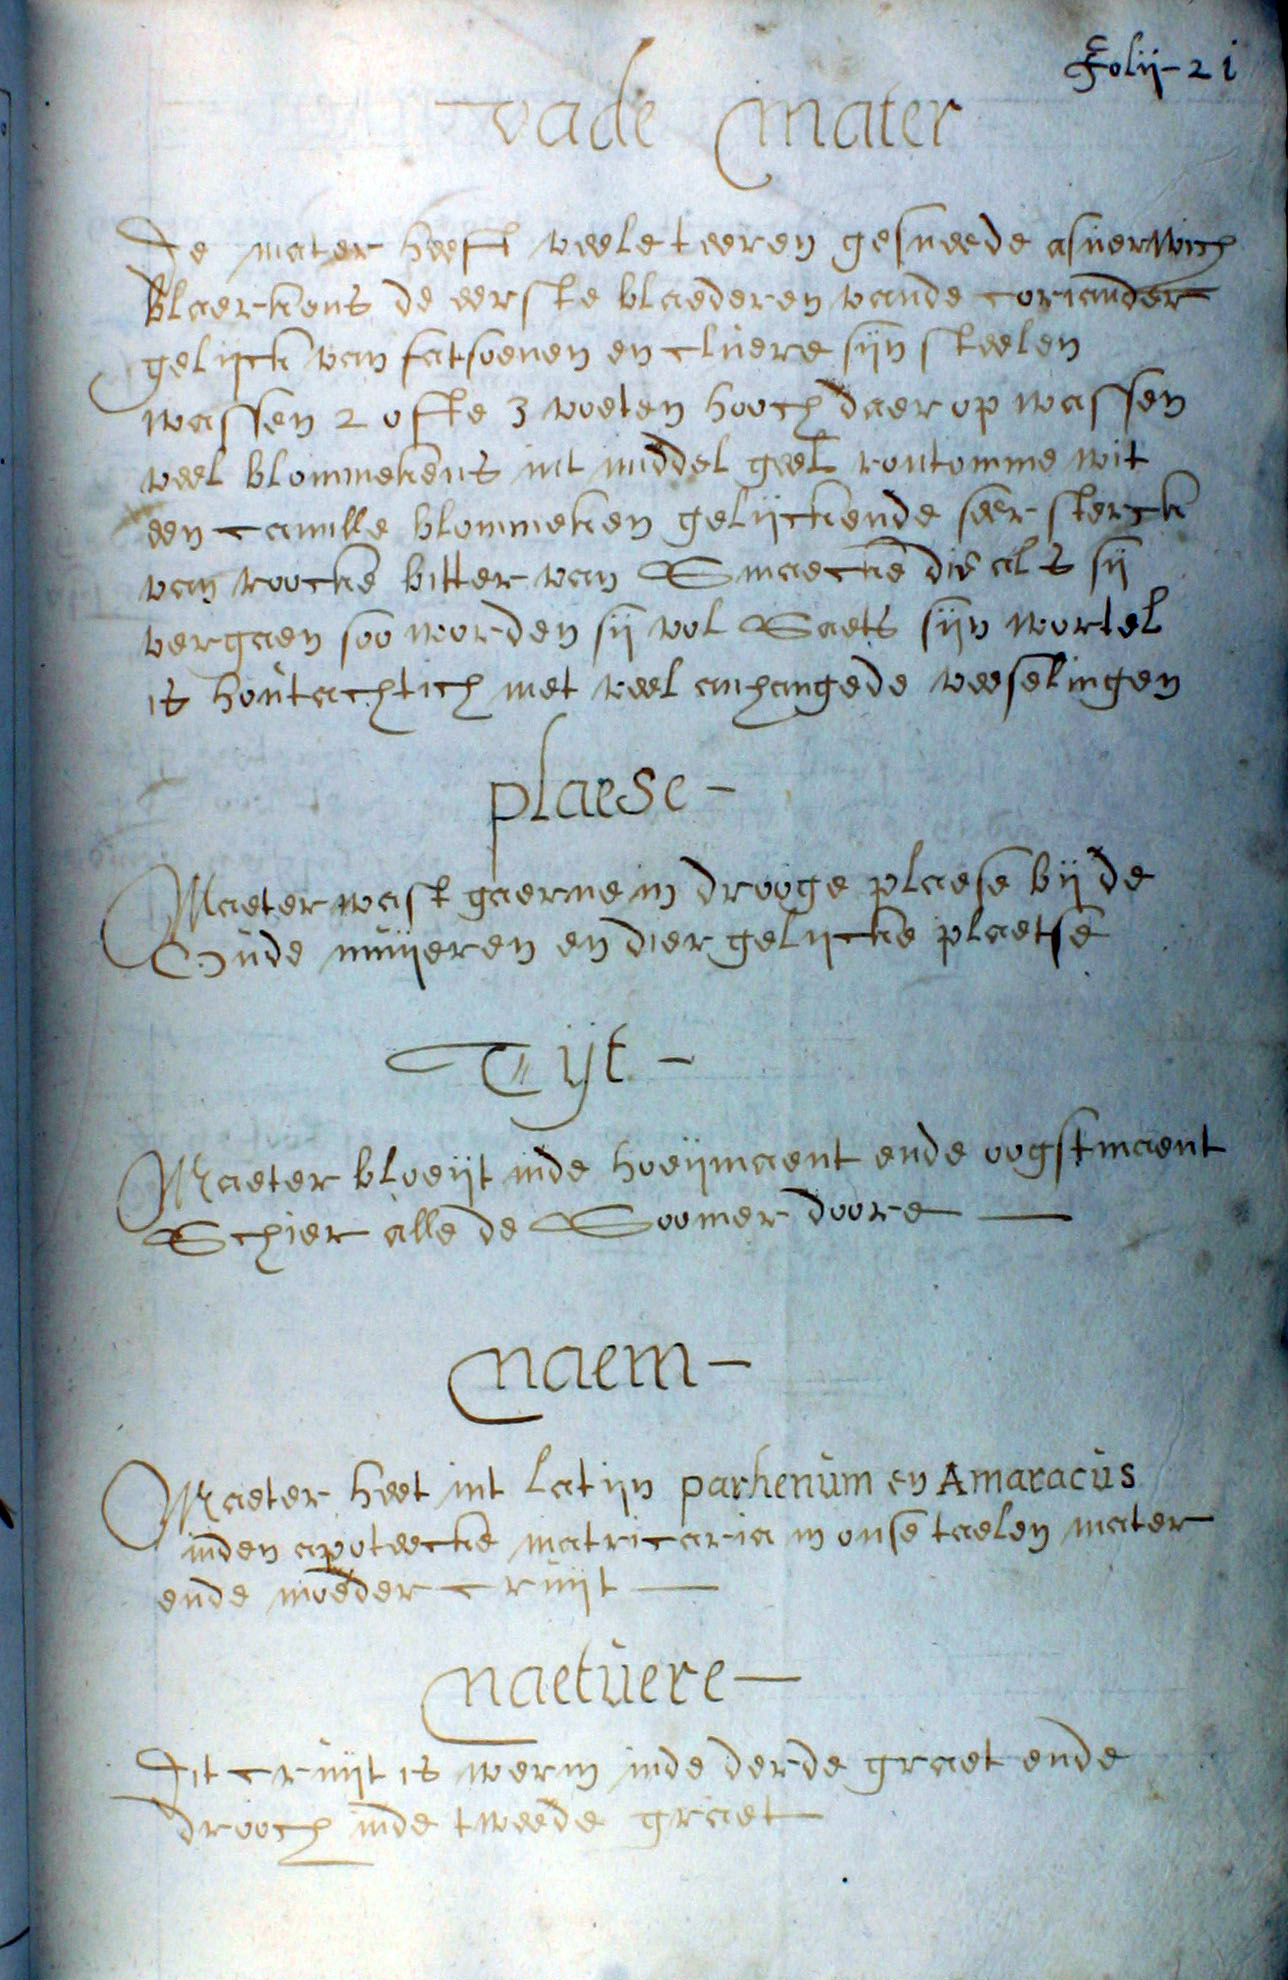 Folij-21
vade mater
De mater heeft veele teeren gesneede asverwich
blaerkens de eerste blaederen vande coriander
gelijck van fatsoenen en cluere sijn steelen
wassen 2 ofte 3 voeten hooch daer op wassen
veel blommekens int middel geel rontomme wit
een camille blommeken gelijckende seer sterck
van roocke bitter van Smaecke die als sij
vergaen soo worden sij vol Saets sijn wortel
is houtachtich met veel anhangede veeselingen
plaese -
Maeter wast gaerne in drooge plaese bij de
Oude muijeren en diergelijcke plaetse
Tijt -
Maeter bloeijt inde hoeijmaent ende oogstmaent
Schier alle de Soomer doore
naem -
Maeter heet int latijn parhenum en Amaracus
inden apoteecke matricaria in onse taelen mater
ende moeder cruijt
naetuere -
Dit cruijt is werm inde derde graet ende
drooch inde tweede graet